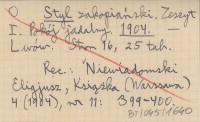 O Styl zakopiański. Zeszyt
I. Pokój jadalny. 1904. —
Lwów. Stron 16, 25 tab.
Rec.: Niewiadomski
Eligjusz, Książka (Warszawa)
4 (1904), nr 11: 399-400.
BJ/045/1640